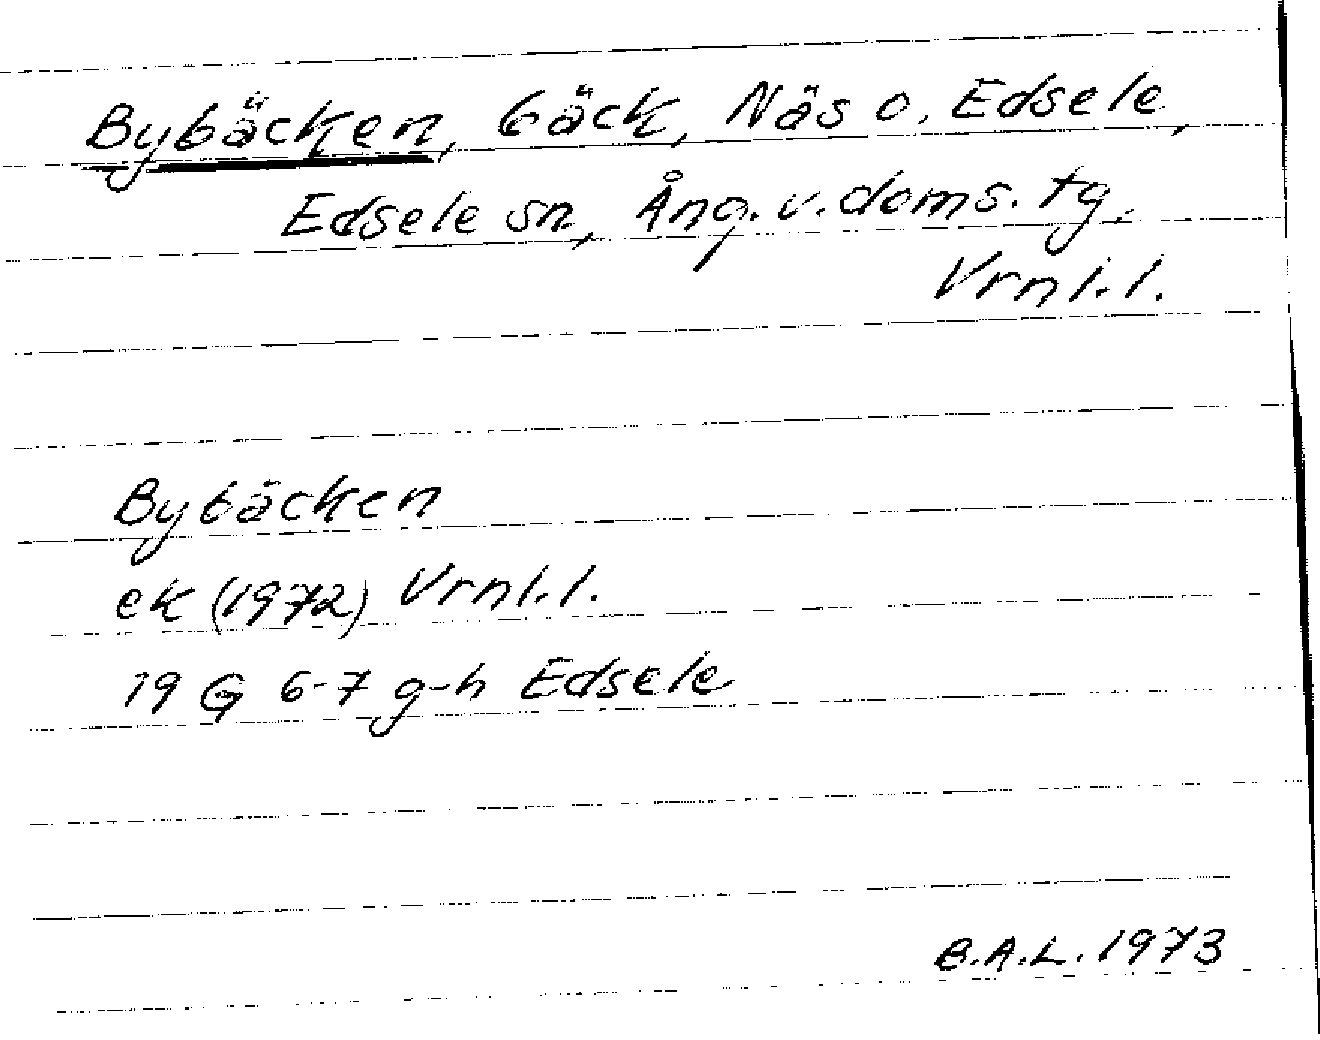 Bybäcken, bäck, Näs o. Edsele,
Edsele sn, Ång. v. doms. tg,
Vrnl.l.
Bybäcken
ek (1972) Vrnl.l.
19 G 6-7 g-h Edsele
B.A.L. 1973